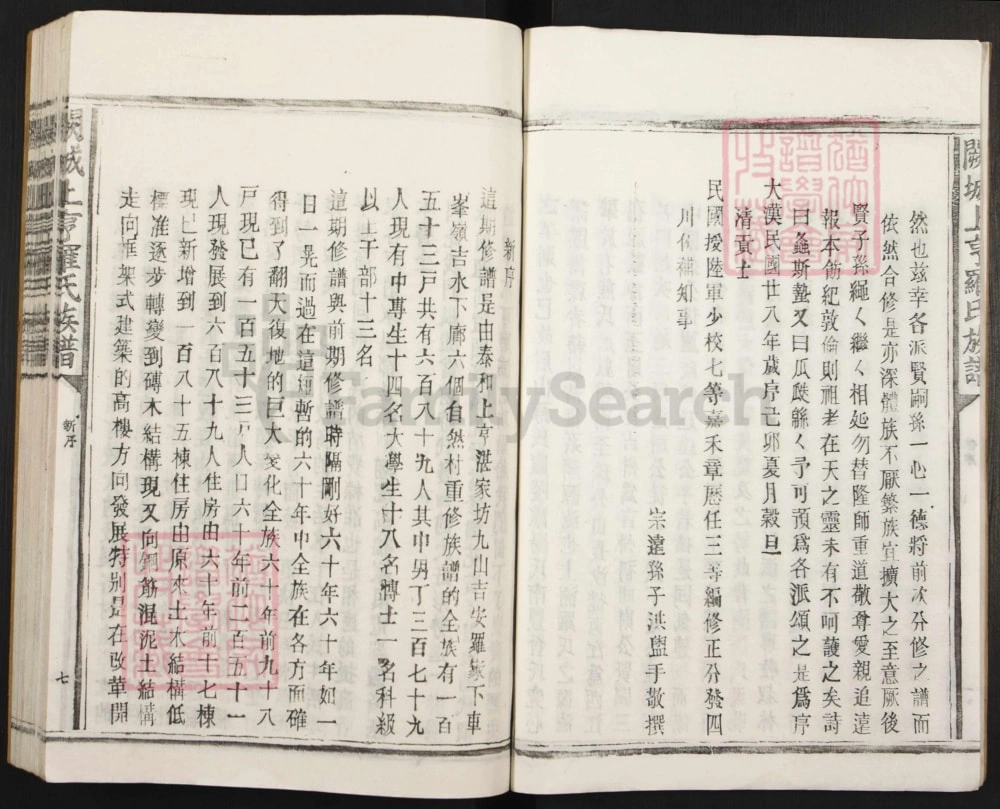 闕城上亨羅氏族譜
然也茲幸各派賢嗣孫一心一德將前次分修之譜而
依然合修是亦深體族不厭繁族宜擴大之至意厥後
賢子孫繩々繼々相延勿替隆師重道敬尊愛親追遠
報本飭紀敦倫則祖老在天之靈未有不呵護之矣詩
曰螽斯蟄又曰瓜瓞緜々予可預爲各派頌之是爲序
大漢民國廿八年歲序己卯夏月穀旦
清貢士
民國授陸軍少校七等嘉禾章歷任三等編修正分發四
川候補知事
宗遠孫子洪盥手敬撰
新序
這期修譜是由泰和上亨湛家坊九山吉安羅家下車
峯嶺吉水下廊六個自然村重修族譜的全族有一百
五十三戸共有六百八十九人其中男丁三百七十九
人現有中專生十四名大學生十八名博士一名科級
以上干部十三名
這期修譜與前期修譜時隔剛好六十年六十年如一
日一晃而過在這短暫的六十年中全族在各方面確
得到了翻天復地的巨大变化全族六十年前九十八
戸現已有一百五十三戸人口六十年前二百五十一
人現發展到六百八十九人住房由六十年前十七棟
現已新增到一百八十五棟住房由原來土木結構低
標准逐步轉變到磚木結構現又向鋼筋混泥土結構
走向框架式建築的高樓方向發展特別是在改革開
闕城上亨羅氏族譜
新序
七
FamilySearch